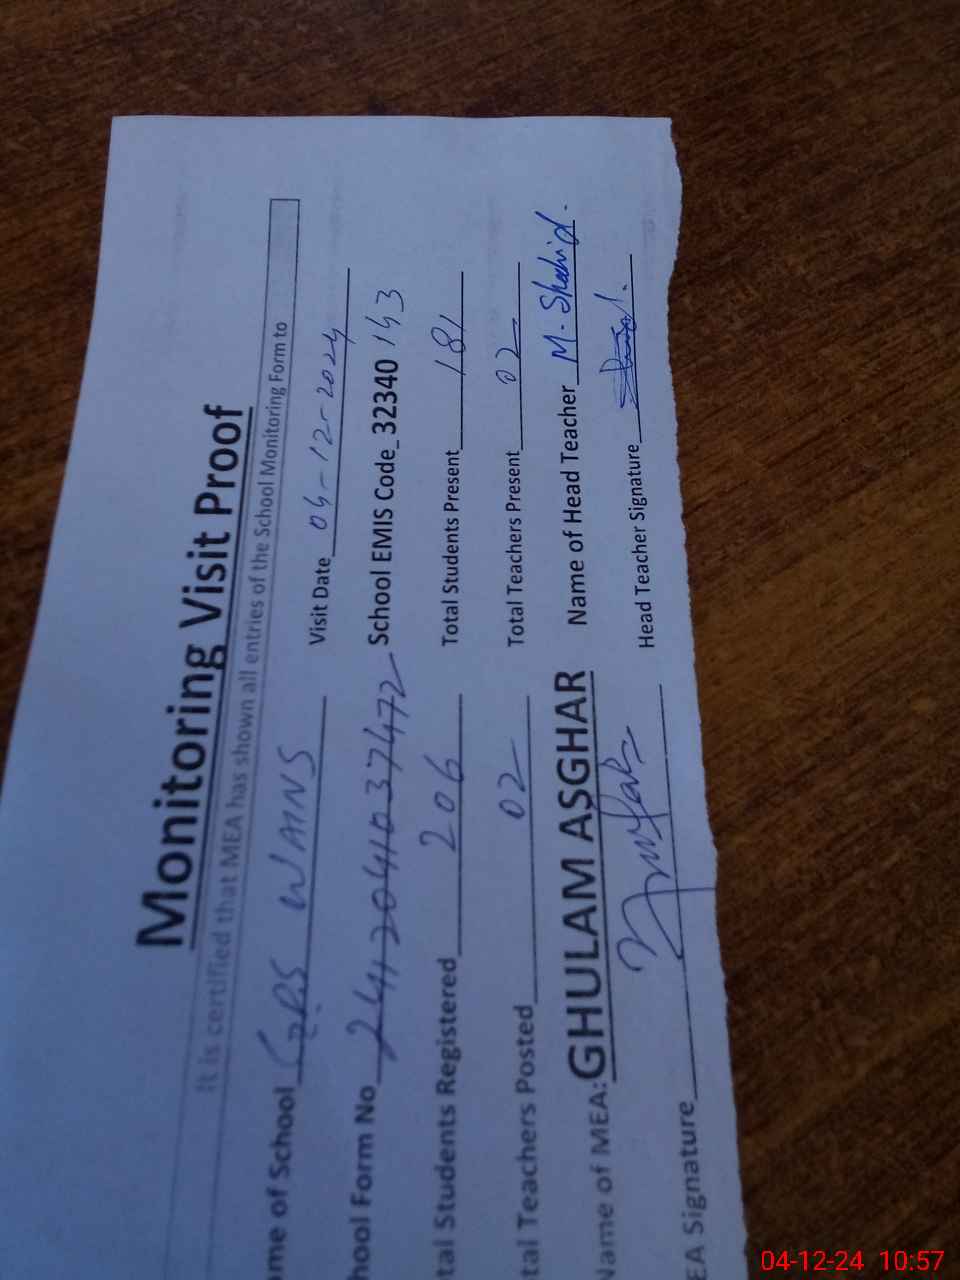 Monitoring Visit Proof
It is certified that MEA has shown all entries of the School Monitoring Form to
me of School GPS WAINS Visit Date 04-12-2024
hool Form No 2412041037472 School EMIS Code_32340 143
tal Students Registered 206 Total Students Present 181
tal Teachers Posted 02 Total Teachers Present 02
Name of MEA: GHULAM ASGHAR Name of Head Teacher M. Shahid.
EA Signature Head Teacher Signature
04-12-24 10:57